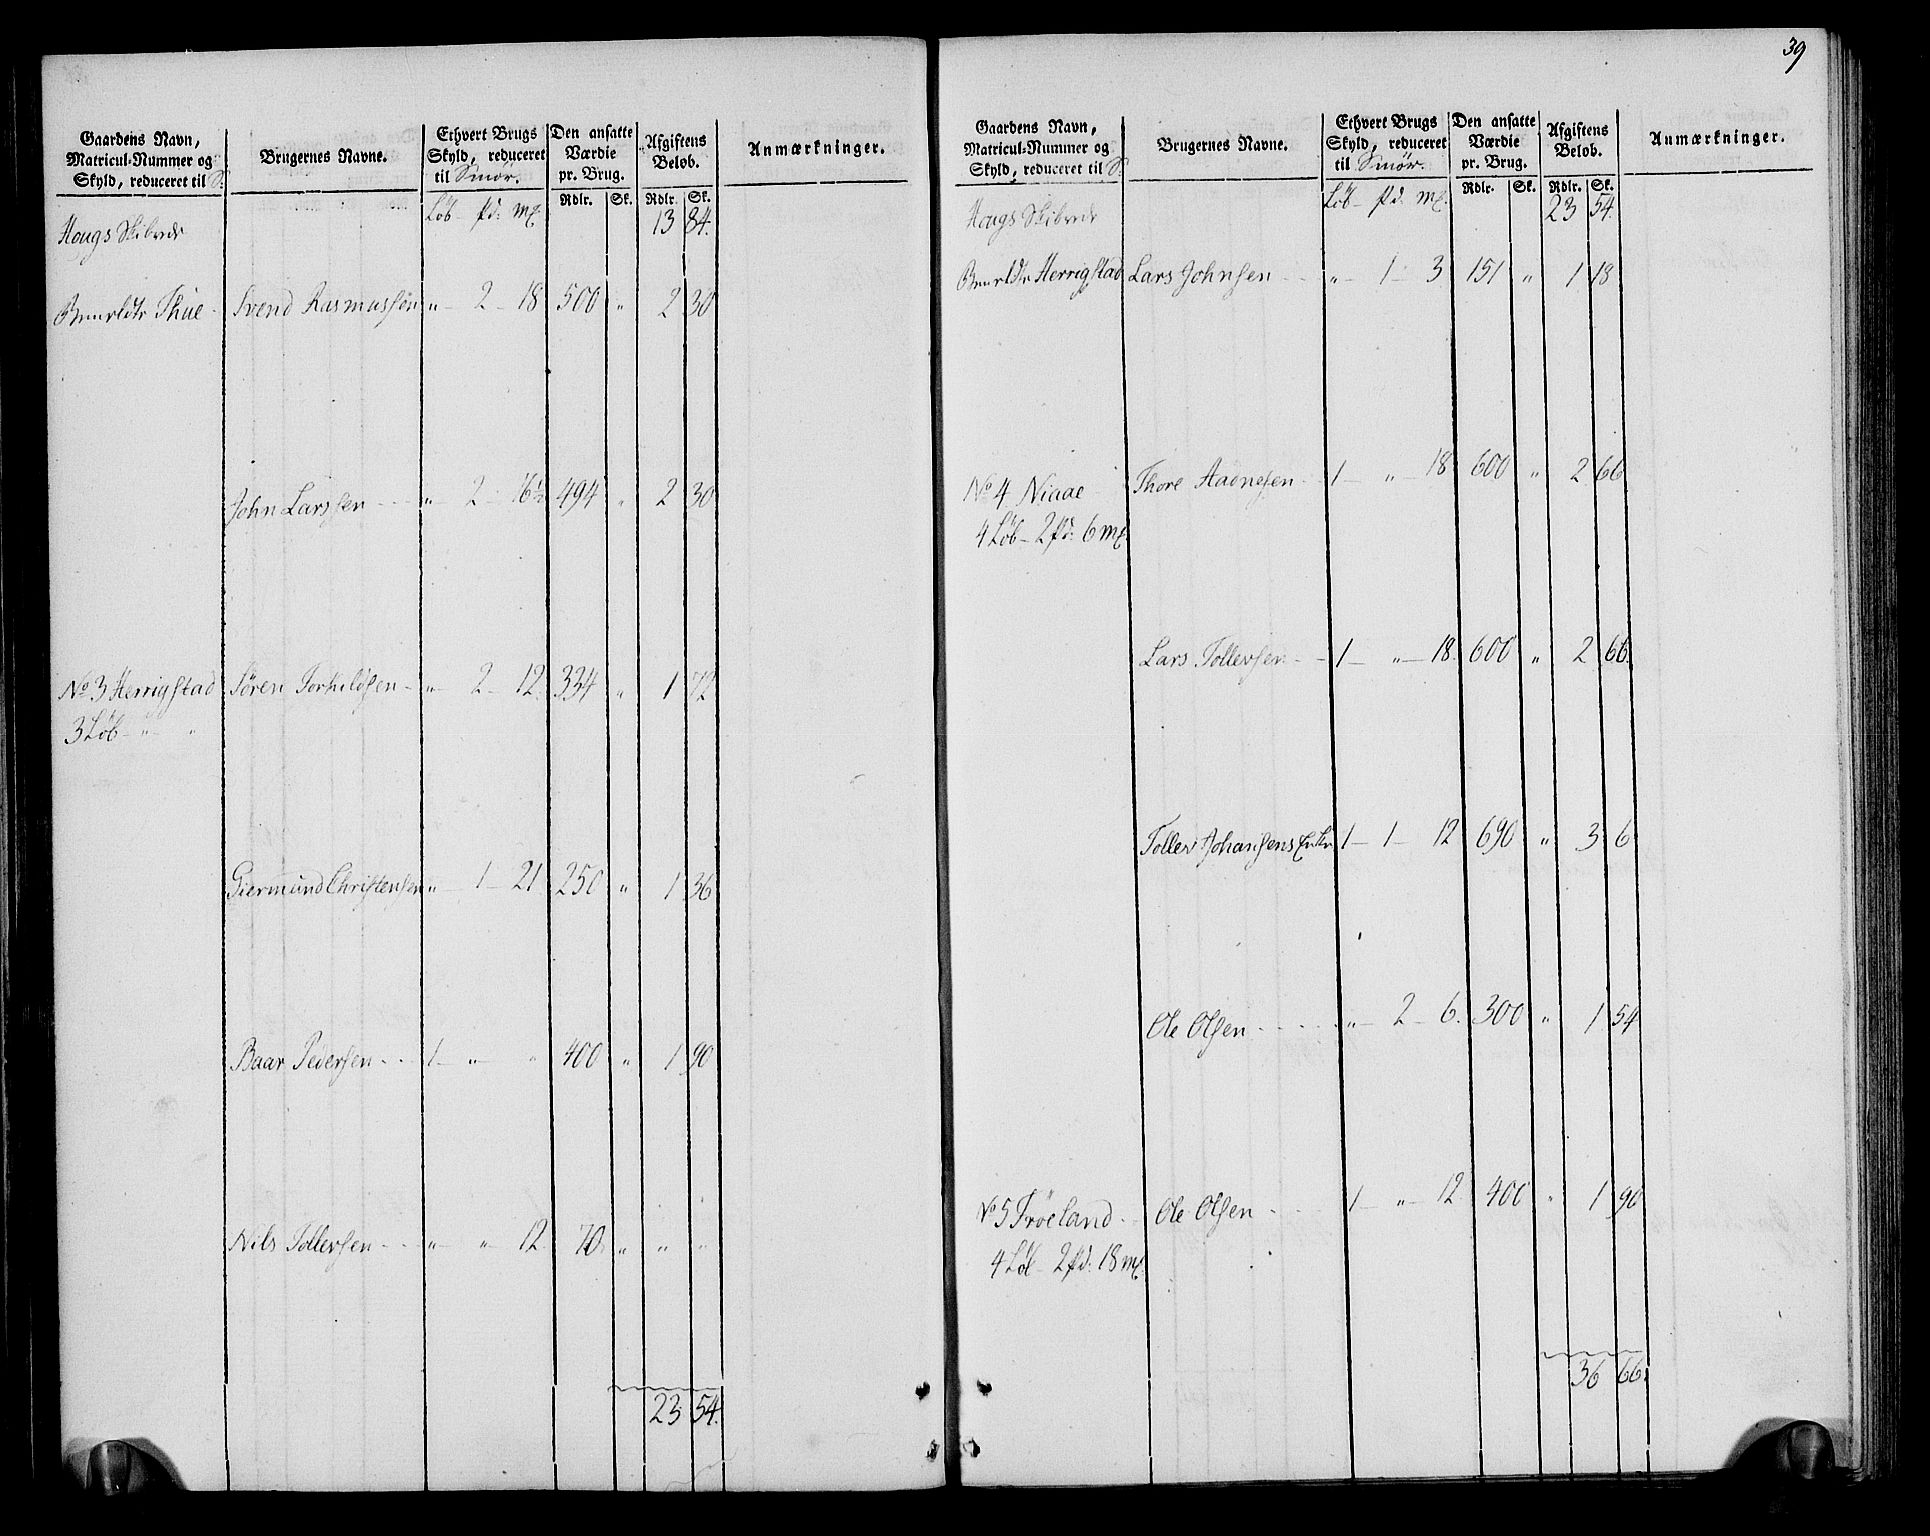 Gaardens Navn, Matricul-Nummer og Skyld, reduceret til S.
Brugernes Navne.
Ethvert Brugs Skyld, reduceret til Smør.
Den ansatte Værdie pr. Brug.
Afgiftens Beløb.
Anmærkninger.
Rdlr. Sk. Rdlr. Sk.
Løb - Pd: mk.
Hougs Skibrede 13 84.
Thue - Svend Rasmussen „ - 2 - 18 500 „ 2 30
John Larssen - - - „ - 2 - 16½ 494 „ 2 30
No 3 Herrigstad Sören Torkildsen - „ - 2 - 12. 334 „ 1 72
3 Løb - „ - „
Giermund Christensen „ - 1 - 21 250 „ 1 36
Baar Pedersen - - - 1 - „ - „ 400 „ 1 90
Nils Tollevsen - - - „ - „ - 12. 70 „ „ „
23 54.
39
Gaardens Navn, Matricul-Nummer og Skyld, reduceret til S.
Brugernes Navne.
Ethvert Brugs Skyld, reduceret til Smør.
Den ansatte Værdie pr. Brug.
Afgiftens Beløb.
Anmærkninger.
Rdlr. Sk. Rdlr. Sk.
Løb - Pd: mk.
Hougs Skibrede 23 54.
Herrigstad Lars Johnsen - - „ - 1 - 3 151 „ 1 18
No 4 Niaae - Thore Aadnesen - 1 - „ - 18 600 „ 2 66
4 Løb - 2 Pd: 6 mk
Lars Tollevsen - - 1 - „ - 18. 600 „ 2 66.
Tollev Johansens Enke 1 - 1 - 12 690 „ 3 6
Ole Olsen - - - - - „ - 2 - 6. 300 „ 1 54
No 5 Tröeland - Ole Olsen - - - 1 - „ - 12. 400 „ 1 90
4 Løb - 2 Pd: 18 mk.
36 66.